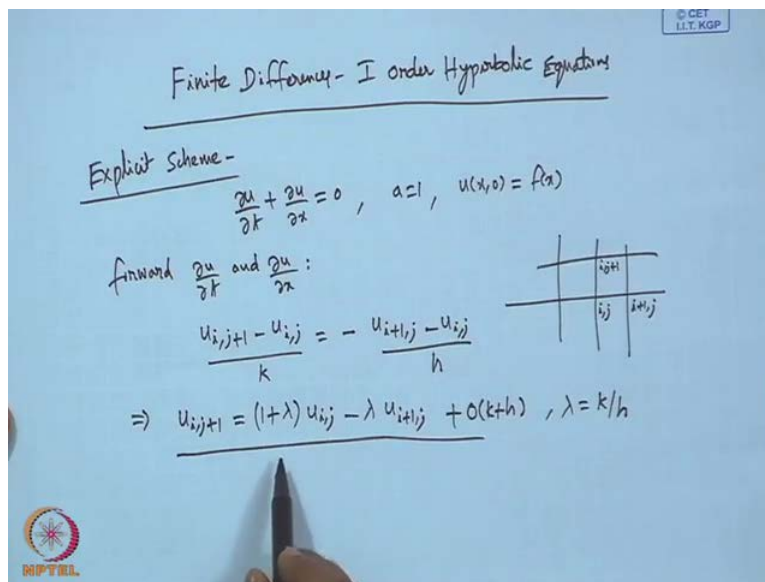 © CET
I.I.T. KGP
Finite Difference - I order Hyperbolic Equations
Explicit Scheme -
∂u/∂t + ∂u/∂x = 0 , a=1, u(x,0) = f(x)
forward ∂u/∂t and ∂u/∂x :
i,j+1
i,j i+1,j
(u_{i,j+1} - u_{i,j})/k = - (u_{i+1,j} - u_{i,j})/h
⇒ u_{i,j+1} = (1+λ) u_{i,j} - λ u_{i+1,j} + O(k+h) , λ = k/h
NPTEL